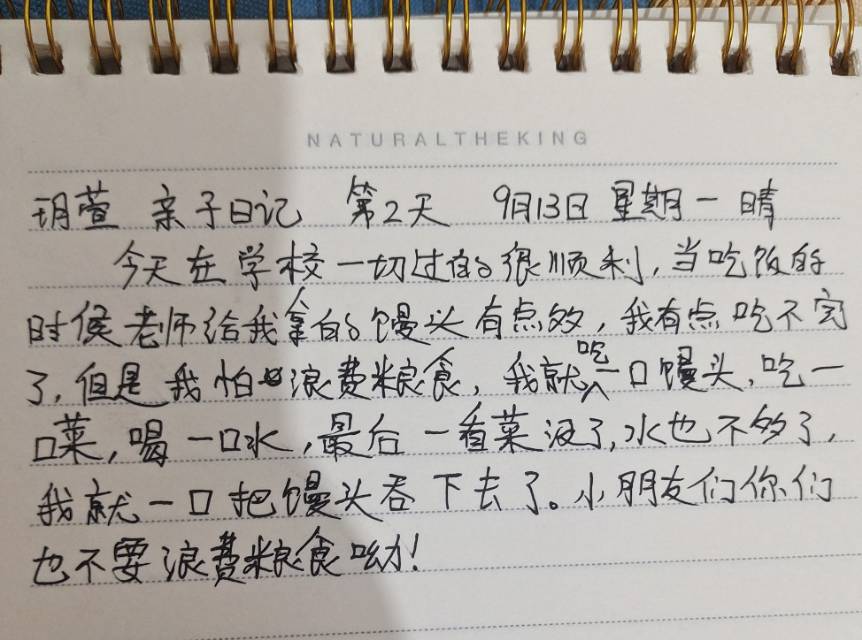 NATURALTHEKING
玥萱 亲子日记 第2天 9月13日 星期一 晴
今天在学校一切过的很顺利,当吃饭的
时候老师给我拿的馒头有点多,我有点吃不完
了,但是我怕浪费粮食,我就吃一口馒头,吃一
口菜,喝一口水,最后一看菜没了,水也不多了,
我就一口把馒头吞下去了。小朋友们你们
也不要浪费粮食呦!